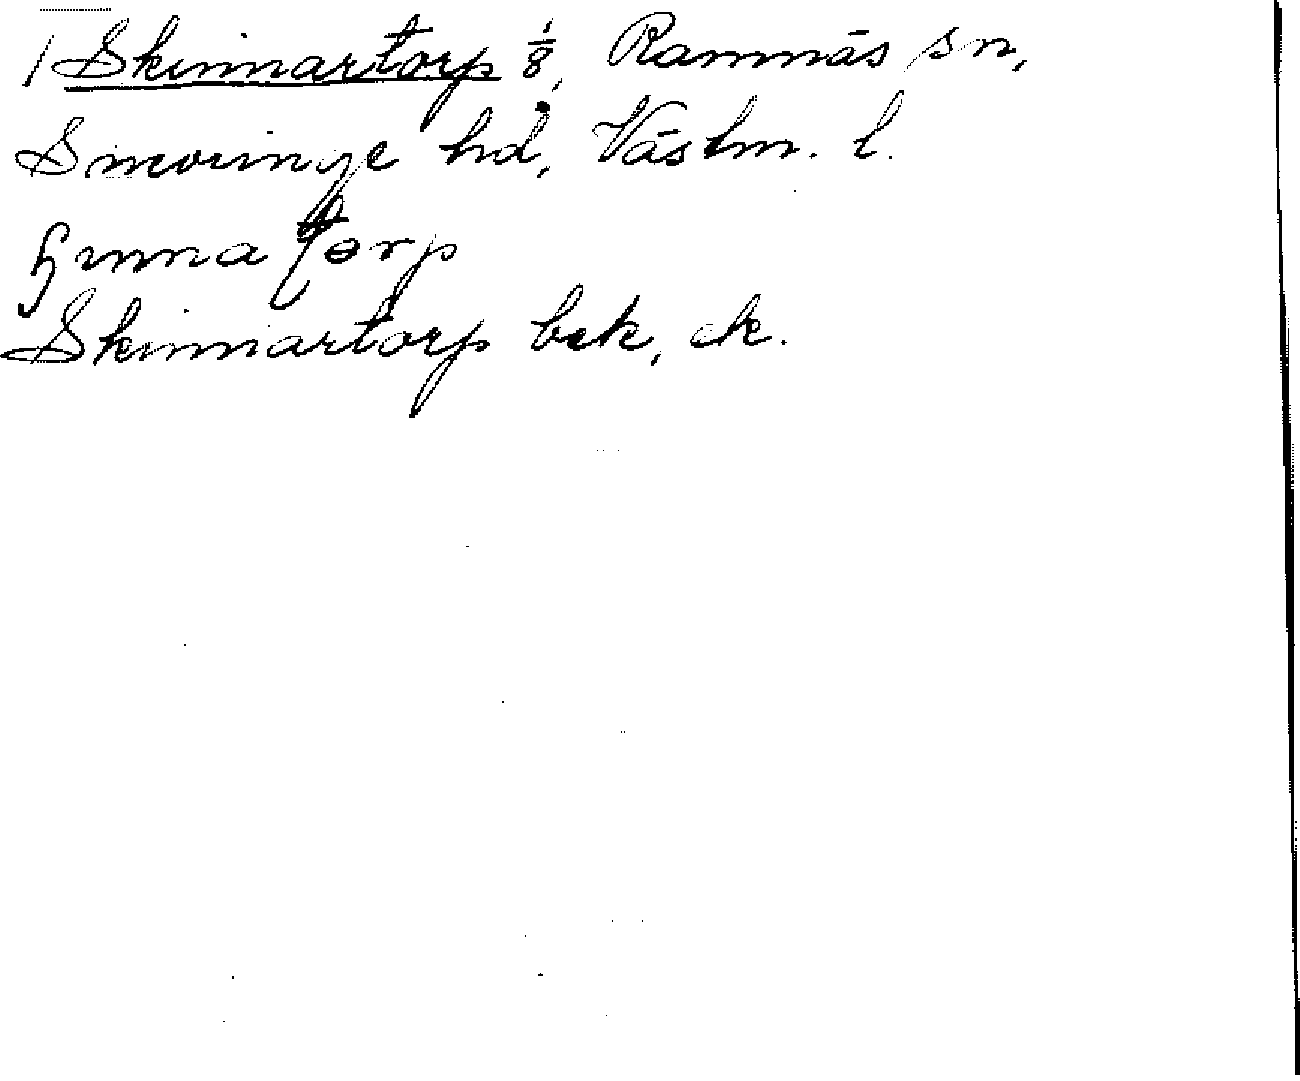 1 Skinnartorp 1/8, Ramnäs sn,
Snevringe hd, Västm. l.
Skinnartorp bek, ek.